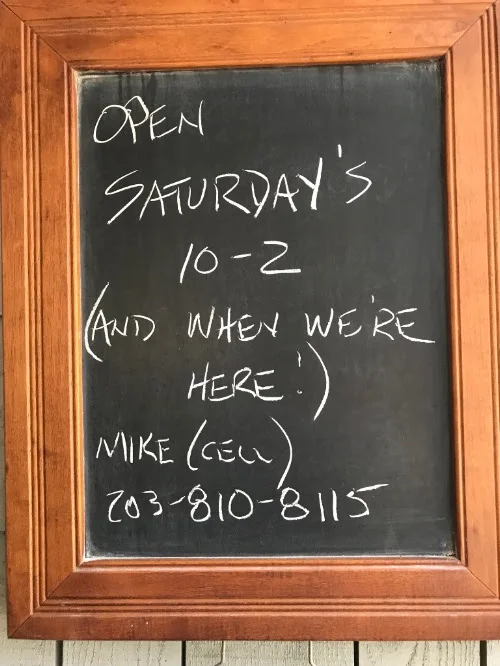 OPEN
SATURDAY'S
10-2
(AND WHEN WE'RE
HERE!)
MIKE (CELL)
203-810-8115